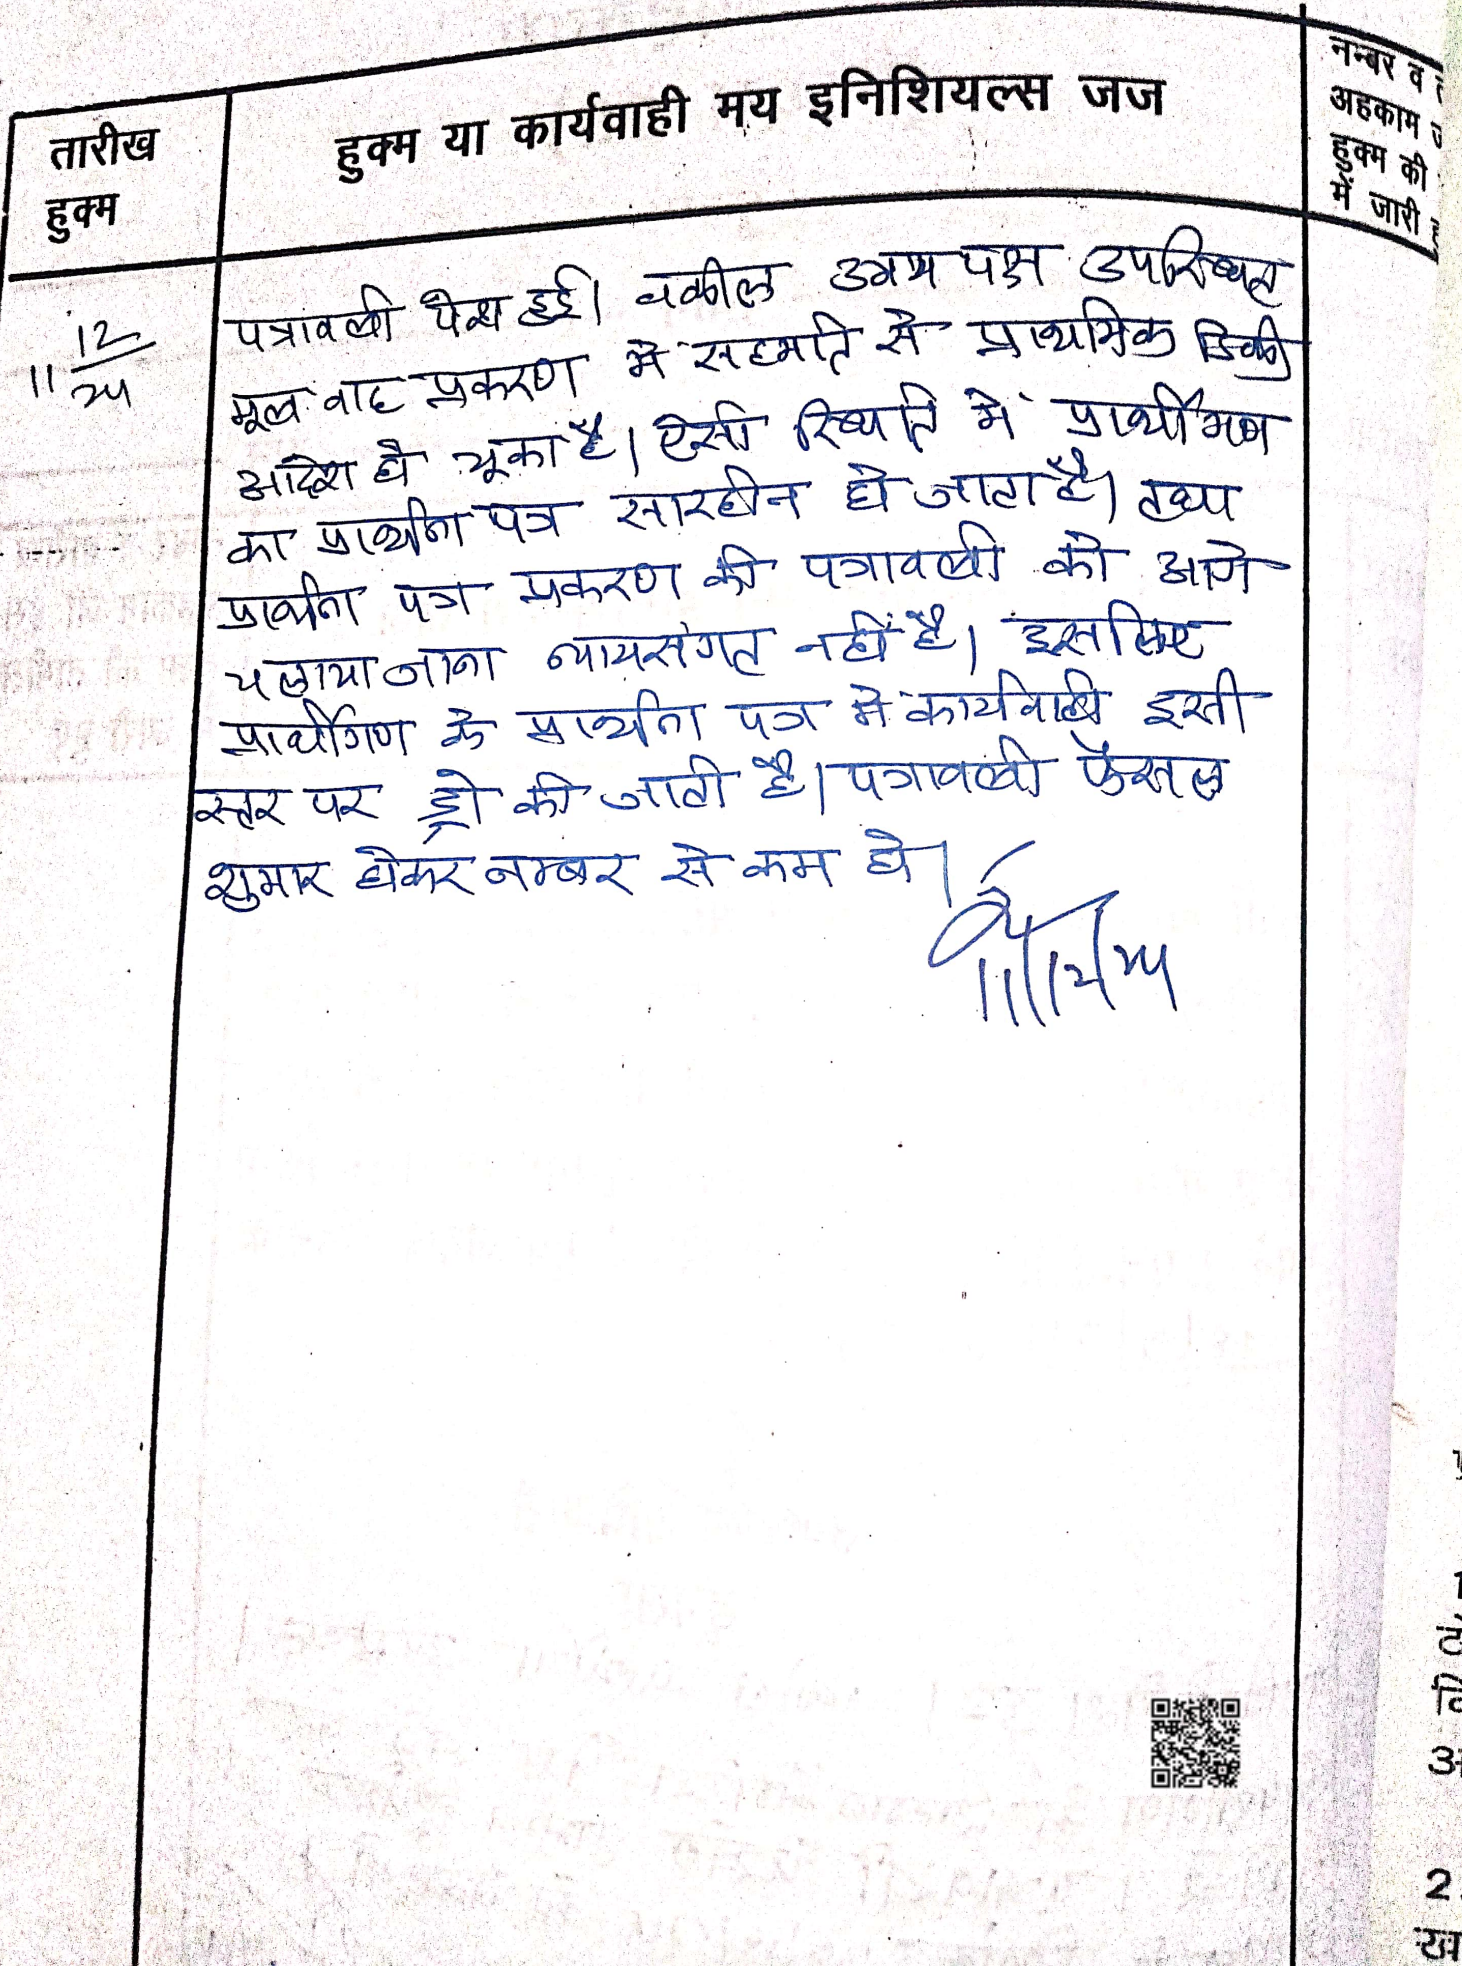 तारीख
हुक्म
हुक्म या कार्यवाही मय इनिशियल्स जज
नम्बर व
अहकाम
हुक्म की
में जारी
11 12/24
पत्रावली पेश हुई। वकील उभय पक्ष उपस्थित
मूल वाद प्रकरण में सहमति से प्राथमिक डिक्री
आदेश हो चूका है। ऐसी स्थिति में प्रार्थीगण
का प्रार्थना पत्र सारहीन हो जाता है। तथा
प्रार्थना पत्र प्रकरण की पत्रावली को आगे
चलाया जाना न्यायसंगत नहीं है। इसलिए
प्रार्थीगण के प्रार्थना पत्र में कार्यवाही इसी
स्तर पर ड्रो की जाती है। पत्रावली फैसल
शुमार होकर नम्बर से कम हो।
11/12/24